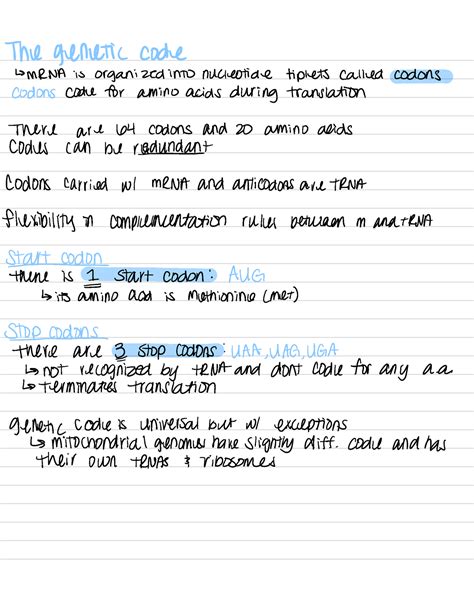 The genetic code
↳ mRNA is organized into nucleotide tiplets called codons
codons code for amino acids during translation
There are 64 codons and 20 amino acids
Codes can be redundant
Codons carried w/ mRNA and anticodons are tRNA
flexibility in complementation rules between m and tRNA
Start codon
there is 1 start codon: AUG
↳ its amino acid is Methionine (met)
Stop codons
there are 3 stop codons: UAA, UAG, UGA
↳ not recognized by tRNA and dont code for any a.a
↳ terminates translation
genetic code is universal but w/ exceptions
↳ mitochondrial genomes have slightly diff. code and has
their own tRNAs & ribosomes